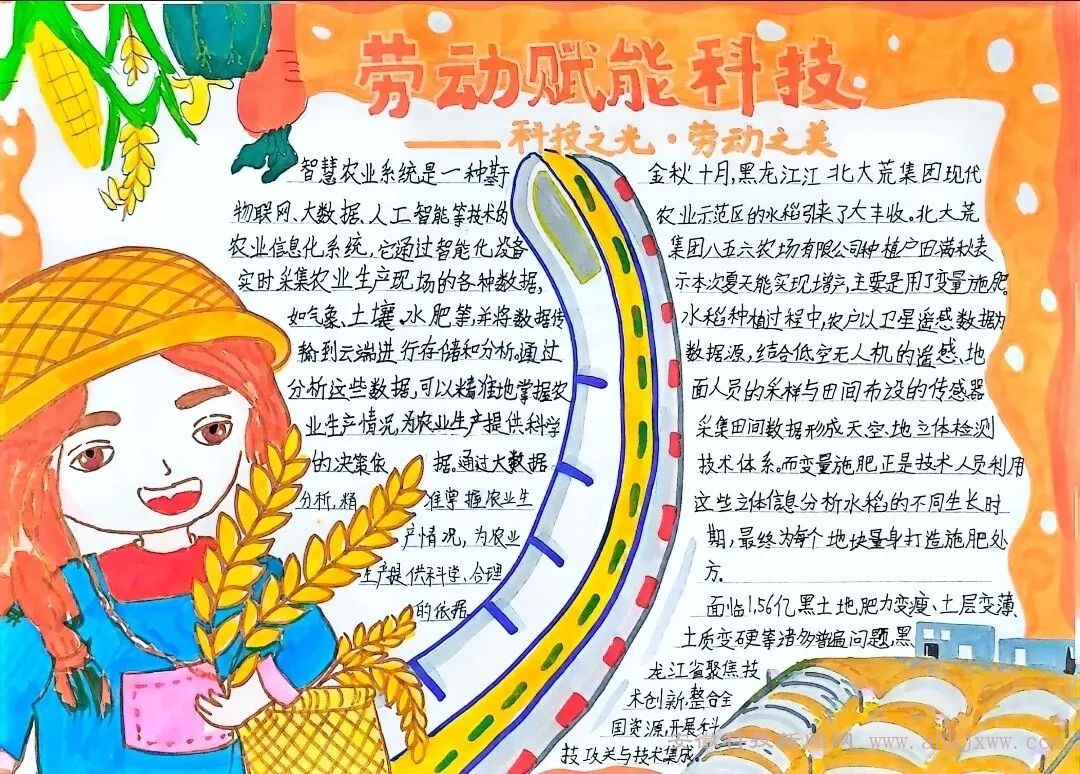 劳动赋能科技
——科技之光·劳动之美
智慧农业系统是一种基于
物联网、大数据、人工智能等技术的
农业信息化系统,它通过智能化设备
实时采集农业生产现场的各种数据,
如气象、土壤、水肥等,并将数据传
输到云端进行存储和分析。通过
分析这些数据,可以精准地掌握农
业生产情况,为农业生产提供科学
的决策依据。通过大数据
分析,精准掌握农业生
产情况,为农业
生产提供科学、合理
的依据
金秋十月,黑龙江江北大荒集团现代
农业示范区的水稻引来了大丰收。北大荒
集团八五六农场有限公司种植户田满秋表
示本次夏天能实现增产,主要是用了变量施肥。
水稻种植过程中,农户以卫星遥感数据为
数据源,结合低空无人机的遥感、地
面人员的采样与田间布设的传感器
采集田间数据形成天空地立体检测
技术体系。而变量施肥正是技术人员利用
这些立体信息分析水稻的不同生长时
期,最终为每个地块量身打造施肥处
方。
面临1.56亿黑土地肥力变瘦、土层变薄、
土质变硬等诸多普遍问题,黑
龙江省聚焦技
术创新,整合全
国资源,开展科
技攻关与技术集成。
www.ahkjxww.com